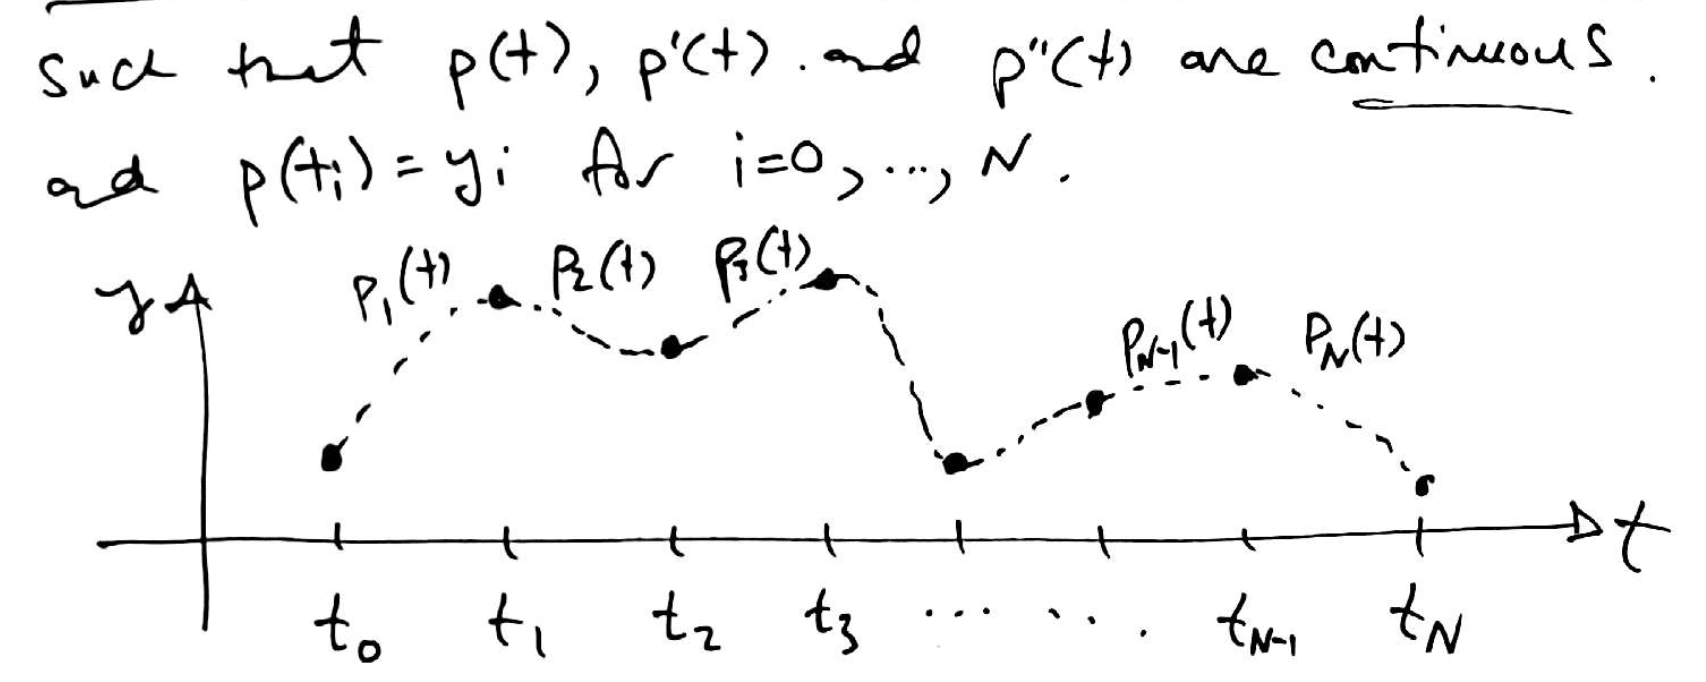 such that p(t), p'(t). and p''(t) are continuous.
and p(ti) = yi for i=0, ..., N.
y P1(t) P2(t) P3(t) PN-1(t) PN(t)
t
t0 t1 t2 t3 ... ... tN-1 tN